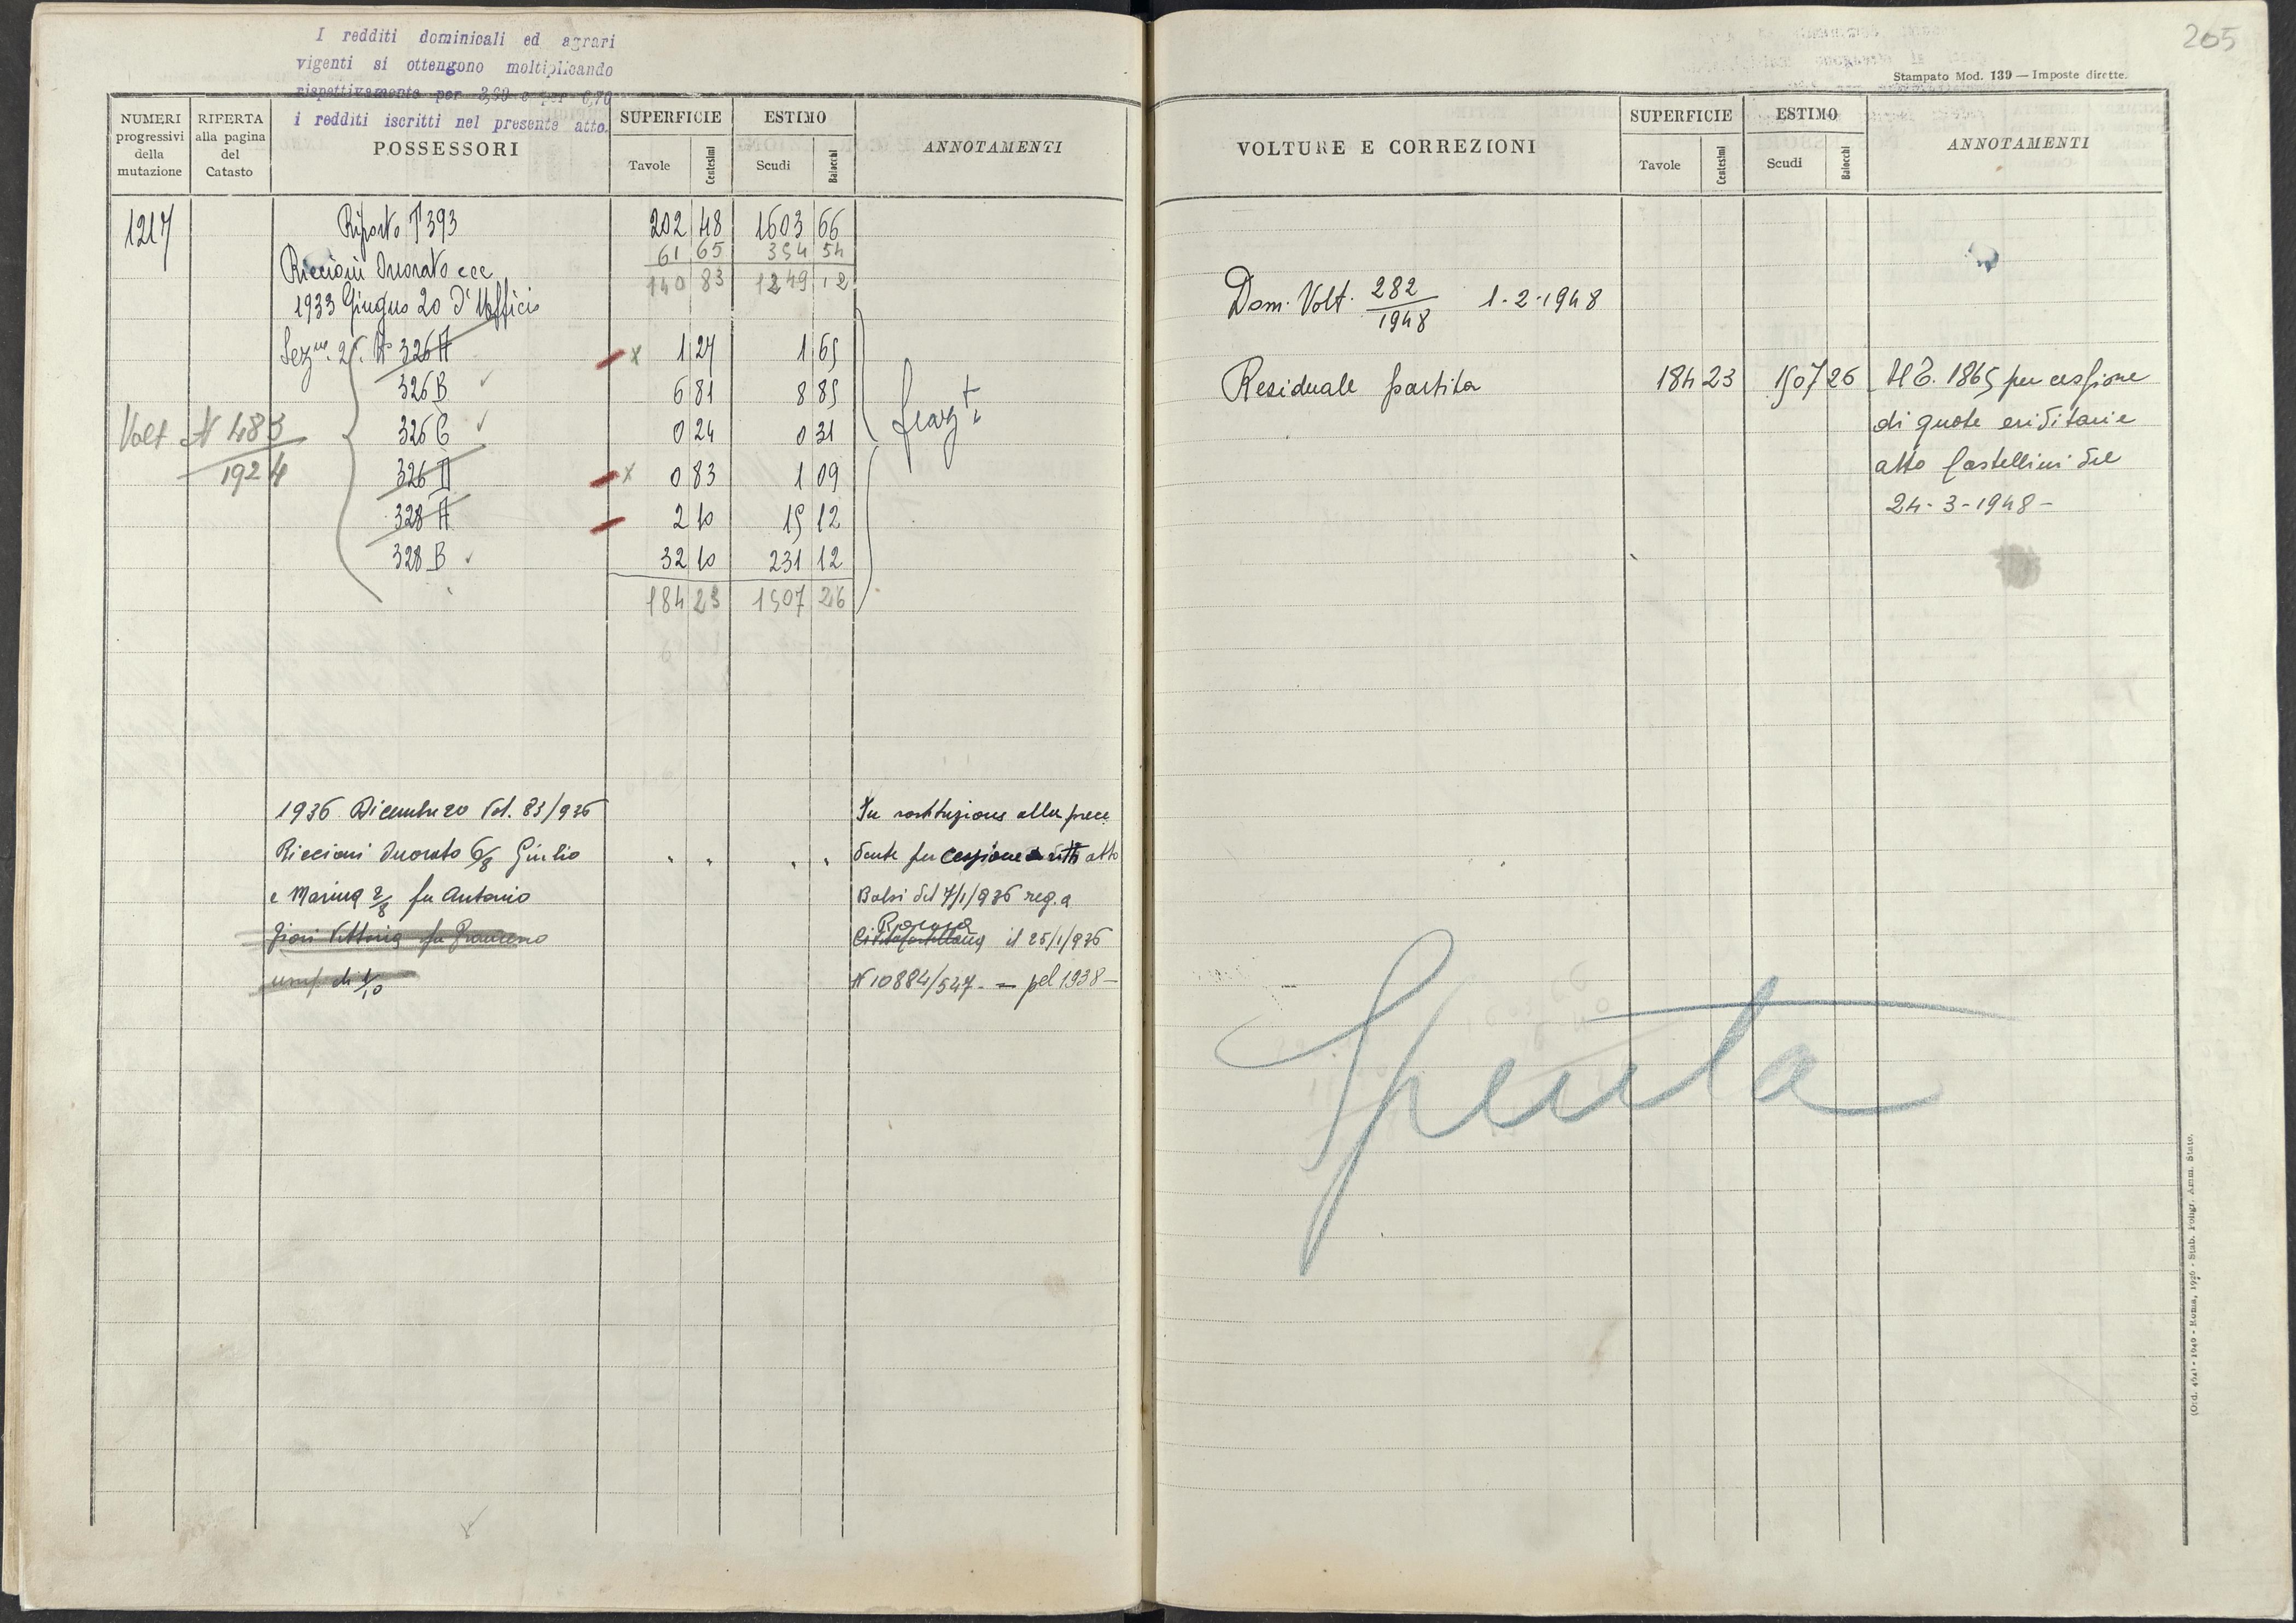 I redditi dominicali ed agrari
vigenti si ottengono moltiplicando
rispettivamente per 3,90 e per 6,70
i redditi iscritti nel presente atto.
NUMERI progressivi della mutazione
RIFERTA alla pagina del Catasto
POSSESSORI
SUPERFICIE
Tavole Centesimi
ESTIMO
Scudi Baiocchi
ANNOTAMENTI
1217 Riporto T 393 202 48 1603 66
61 65 354 54
Riccioni Onorato ecc 140 83 1249 12
1933 Giugno 20 d'Ufficio
Sezne. 2a. N 326 A x 1 27 1 65
326 B 6 81 8 85
326 C 0 24 0 31
Volt N 483
1924
326 D x 0 83 1 09
328 A 2 10 15 12
328 B 32 10 231 12
184 23 1507 26
frazti
1936 Dicembre 20 Vol. 83/936
Riccioni Onorato 6/8 Giulio " " " "
e Marina 2/8 fu Antonio
Vittoria fu Francesco
usuf. di 1/10
In sostituzione alla prece
dente per cessione diritti atto
Balsi del 7/1/936 reg. a
Roma
Civitacastellana il 25/1/936
N 10884/547. — pel 1938 —
205
Stampato Mod. 139 — Imposte dirette.
VOLTURE E CORREZIONI
SUPERFICIE
Tavole Centesimi
ESTIMO
Scudi Baiocchi
ANNOTAMENTI
Dom. Volt. 282
1948
1-2-1948
Residuale partita 184 23 1507 26
Al T. 1865 per cessione
di quote ereditarie
atto Castellini del
24-3-1948 -
Spenta
Roma, 1926 - Stab. Poligr. Amm. Stato.